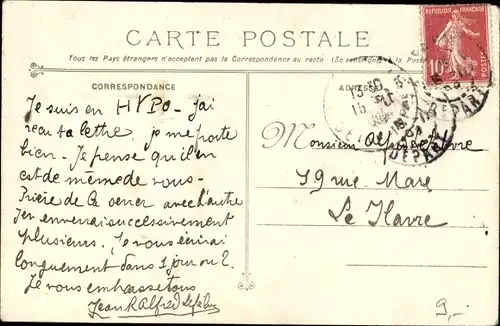 CARTE POSTALE
Tous les Pays étrangers n'acceptent pas la Correspondance au recto (Se renseigner à la Poste)
CORRESPONDANCE
Je suis en HYPO - jai
reçu ta lettre je me porte
bien. Je pense qu'il en
est de même de vous -
Prière de avec l'autre
J'en enverrai successivement
plusieurs. Je vous écrirai
longuement dans 1 jour ou 2.
Je vous embrasse tous
Jean R Alfred Lefebvre
ADRESSE
Monsieur Lefebvre
19 rue Mare
Le Havre
REPUBLIQUE FRANÇAISE
10c
POSTES
13 30
15
DEPART
9,-